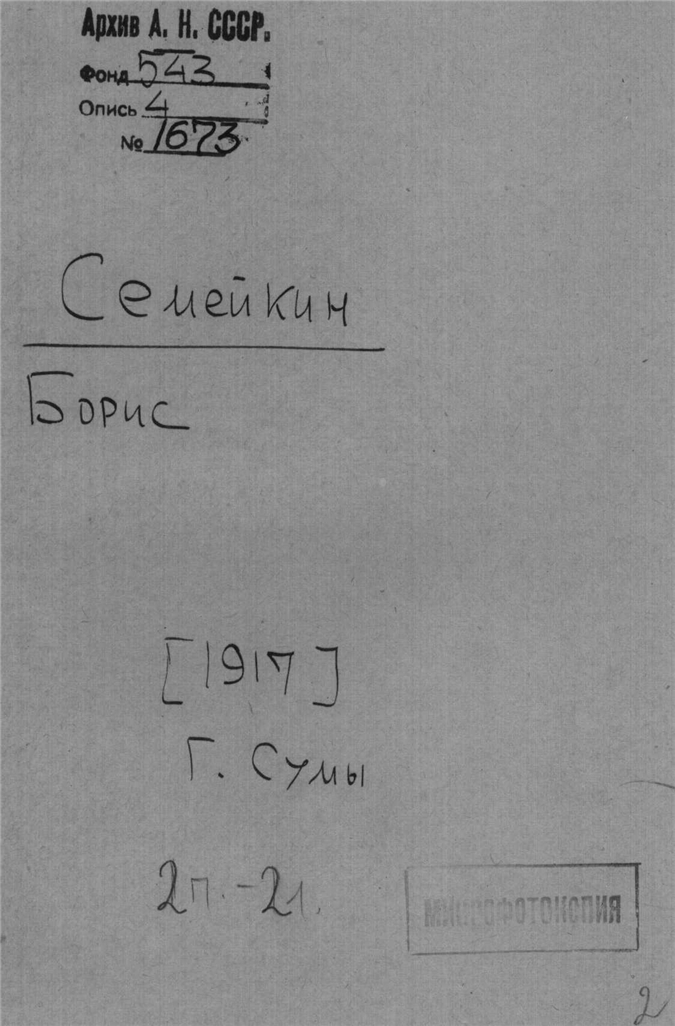 Архив А. Н. СССР.
Фонд 543
Опись 4
№ 1673
Семейкин
Борис
[1917]
Г. Сумы
2п. - 2л.
МИКРОФОТОКОПИЯ
2